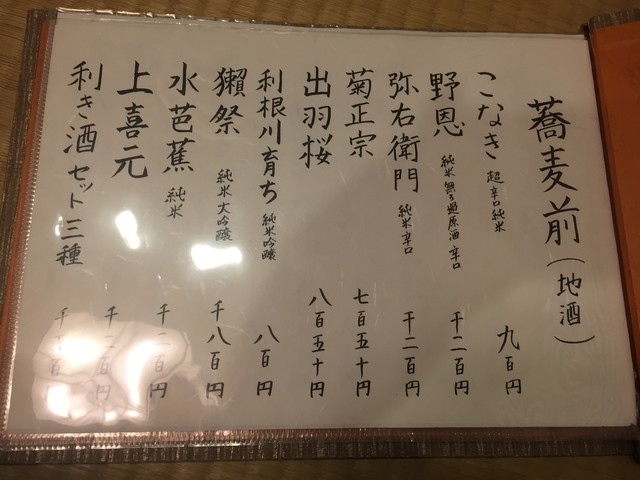 蕎麦前(地酒)
こなき 超辛口純米 九百円
野恩 純米無ろ過原酒辛口 千二百円
弥右衛門 純米辛口 千二百円
菊正宗 七百五十円
出羽桜 八百五十円
利根川育ち 純米吟醸 八百円
獺祭 純米大吟醸 千八百円
水芭蕉 純米 千二百円
上喜元 千二百円
利き酒セット三種